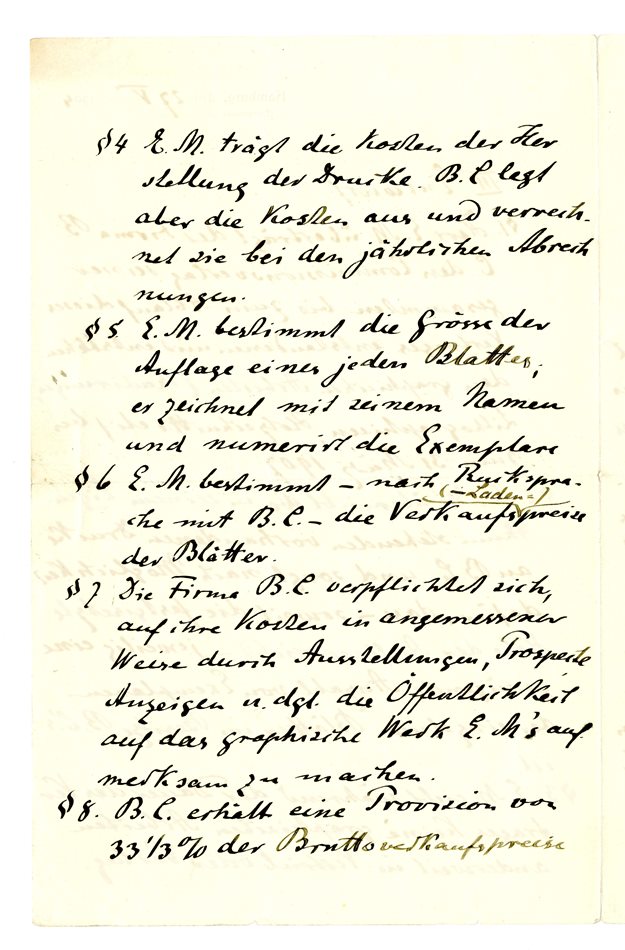 § 4 E. M. trägt die Kosten der Her
stellung der Drucke. B. C legt
aber die Kosten aus und verrech-
net sie bei den jährlichen Abrech
nungen.
§ 5 E. M. bestimmt die Grösse der
Auflage eines jeden Blattes;
er zeichnet mit seinem Namen
und numerirt die Exemplare
§ 6 E. M. bestimmt – nach Rückspra-
(–Laden=)
che mit B. C. – die Verkaufspreise
der Blätter.
§ 7 Die Firma B. C. verpflichtet sich,
auf ihre Kosten in angemessener
Weise durch Ausstellungen, Prospecte
Anzeigen u. dgl. die Öffentlichkeit
auf das graphische Werk E. M's auf
merksam zu machen.
§ 8. B. C. erhält eine Provision von
33 1/3 % der Bruttoverkaufspreise